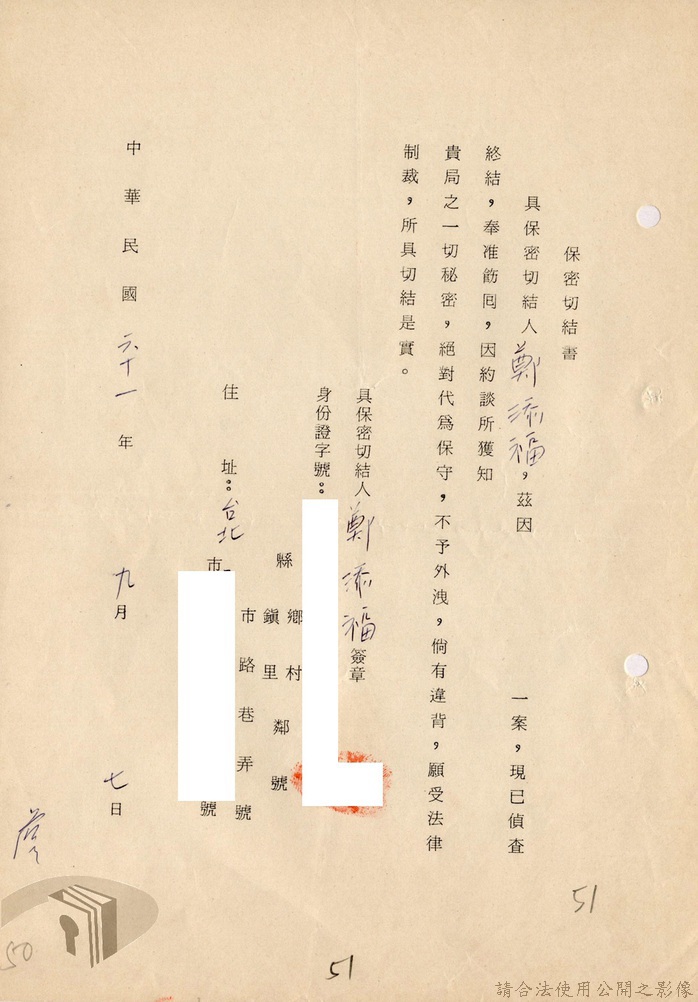 保密切結書
具保密切結人鄭添福，茲因　一案，現已偵查
終結，奉准飭回，因約談所獲知
貴局之一切秘密，絕對代為保守，不予外洩，倘有違背，願受法律
制裁，所具切結是實。
具保密切結人鄭添福簽章
身份證字號：
住址：台北
縣
市
鄉鎮
市
村里
路
鄰
巷
弄
號
號
號
中華民國六十一年九月七日
51
51
50
請合法使用公開之影像